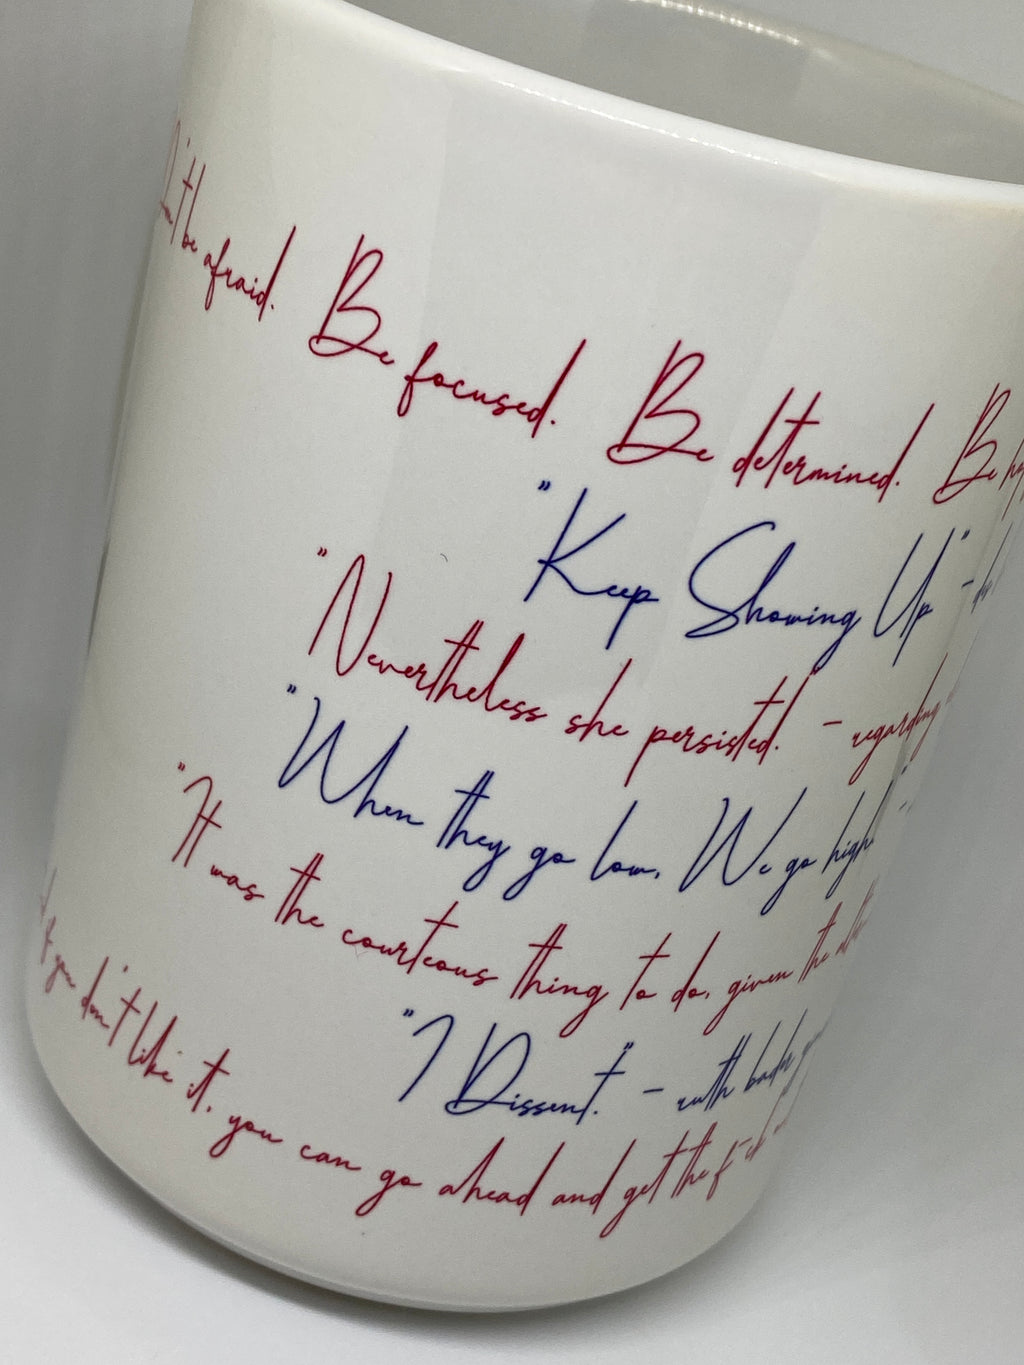 be afraid. Be focused. Be determined. Be
"Keep Showing Up" -
"Nevertheless she persisted." - regarding
"When they go low, We go high" -
"It was the courteous thing to do, given the
"I Dissent." - ruth bader
you don't like it, you can go ahead and get the f